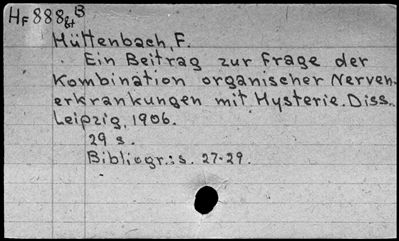 HF 888 bt B
Hüttenbach, F.
Ein Beitrag zur Frage der
Kombination organischer Nerven-
erkrankungen mit Hysterie. Diss.
Leipzig, 1906.
29 s.
Bibliogr.: s. 27-29.